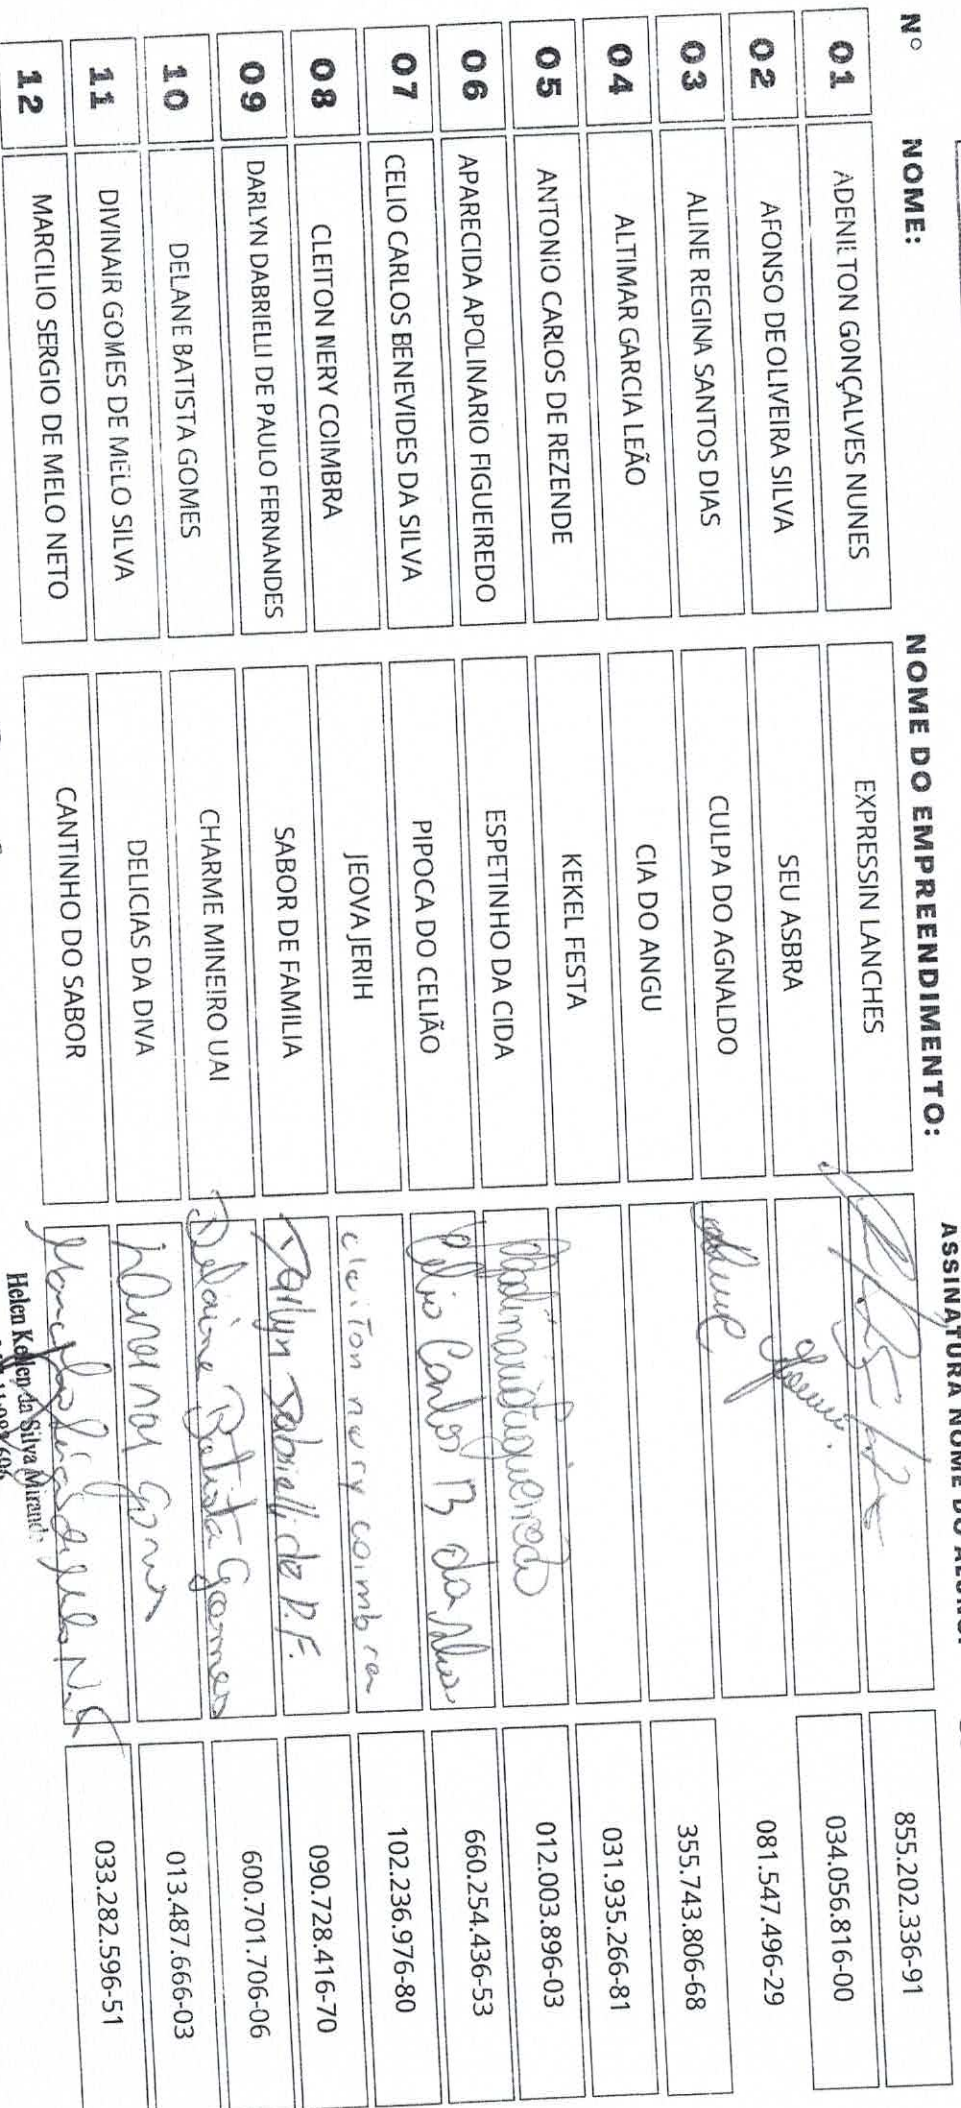 Nº NOME: NOME DO EMPREENDIMENTO: ASSINATURA NOME DO ALUNO:
01 ADENILTON GONÇALVES NUNES EXPRESSIN LANCHES 855.202.336-91
02 AFONSO DEOLIVEIRA SILVA SEU ASBRA 034.056.816-00
03 ALINE REGINA SANTOS DIAS CULPA DO AGNALDO Aline 081.547.496-29
04 ALTIMAR GARCIA LEÃO CIA DO ANGU 355.743.806-68
05 ANTONIO CARLOS DE REZENDE KEKEL FESTA 031.935.266-81
06 APARECIDA APOLINARIO FIGUEIREDO ESPETINHO DA CIDA 012.003.896-03
07 CELIO CARLOS BENEVIDES DA SILVA PIPOCA DO CELIÃO Célio Carlos B da Silva 660.254.436-53
08 CLEITON NERY COIMBRA JEOVA JERIH cleiton nery coimbra 102.236.976-80
09 DARLYN DABRIELLI DE PAULO FERNANDES SABOR DE FAMILIA Darlyn Dabrielli de P.F. 090.728.416-70
10 DELANE BATISTA GOMES CHARME MINEIRO UAI Delaine Batista Gomes 600.701.706-06
11 DIVINAIR GOMES DE MELO SILVA DELICIAS DA DIVA 013.487.666-03
12 MARCILIO SERGIO DE MELO NETO CANTINHO DO SABOR 033.282.596-51
Helen Kellen da Silva Miranda